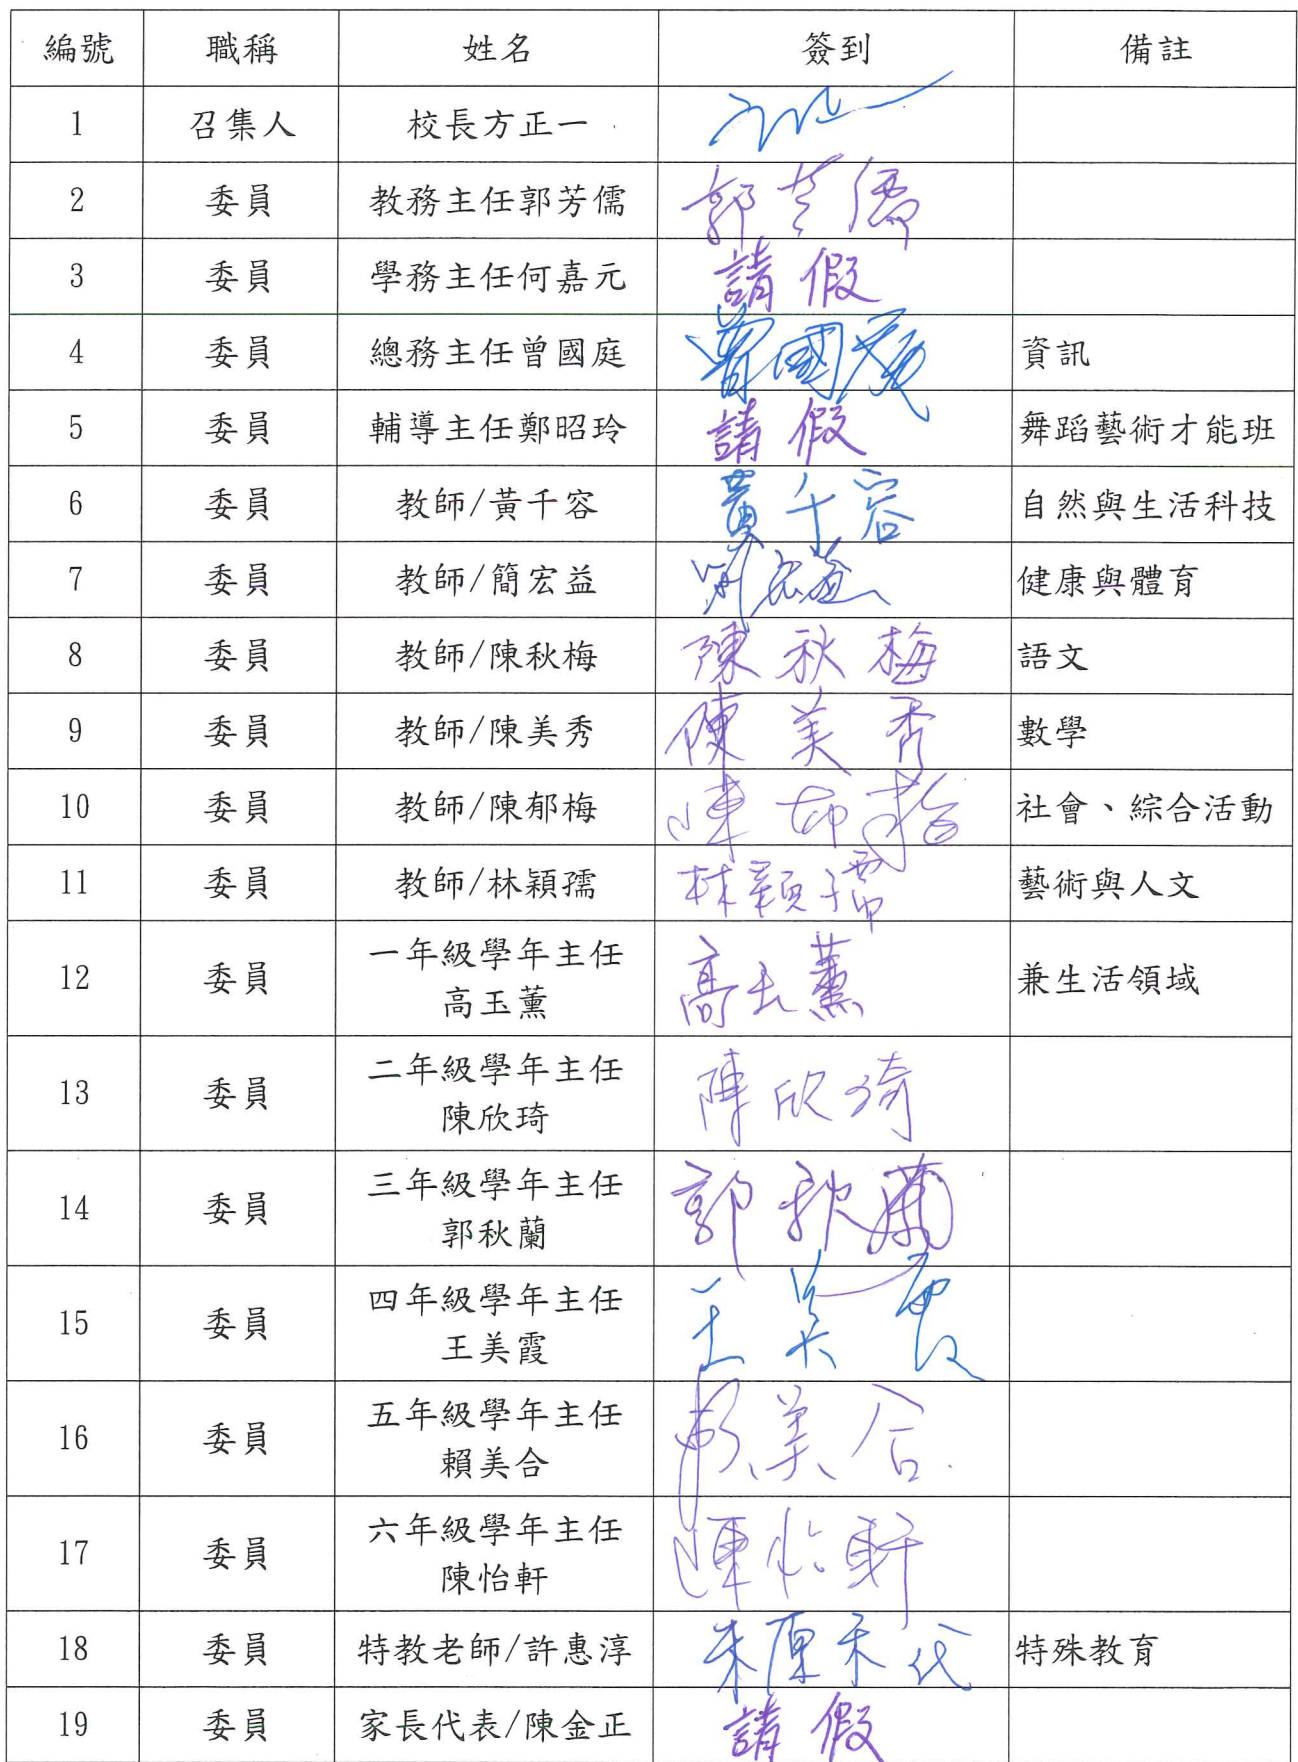 編號 職稱 姓名 簽到 備註
1 召集人 校長方正一
2 委員 教務主任郭芳儒 郭芳儒
3 委員 學務主任何嘉元 請假
4 委員 總務主任曾國庭 曾國庭 資訊
5 委員 輔導主任鄭昭玲 請假 舞蹈藝術才能班
6 委員 教師/黃千容 黃千容 自然與生活科技
7 委員 教師/簡宏益 健康與體育
8 委員 教師/陳秋梅 陳秋梅 語文
9 委員 教師/陳美秀 陳美秀 數學
10 委員 教師/陳郁梅 陳郁梅 社會、綜合活動
11 委員 教師/林穎孺 林穎孺 藝術與人文
12 委員 一年級學年主任
高玉薰 高玉薰 兼生活領域
13 委員 二年級學年主任
陳欣琦 陳欣琦
14 委員 三年級學年主任
郭秋蘭 郭秋蘭
15 委員 四年級學年主任
王美霞 王美霞
16 委員 五年級學年主任
賴美合 賴美合
17 委員 六年級學年主任
陳怡軒 陳怡軒
18 委員 特教老師/許惠淳 代 特殊教育
19 委員 家長代表/陳金正 請假